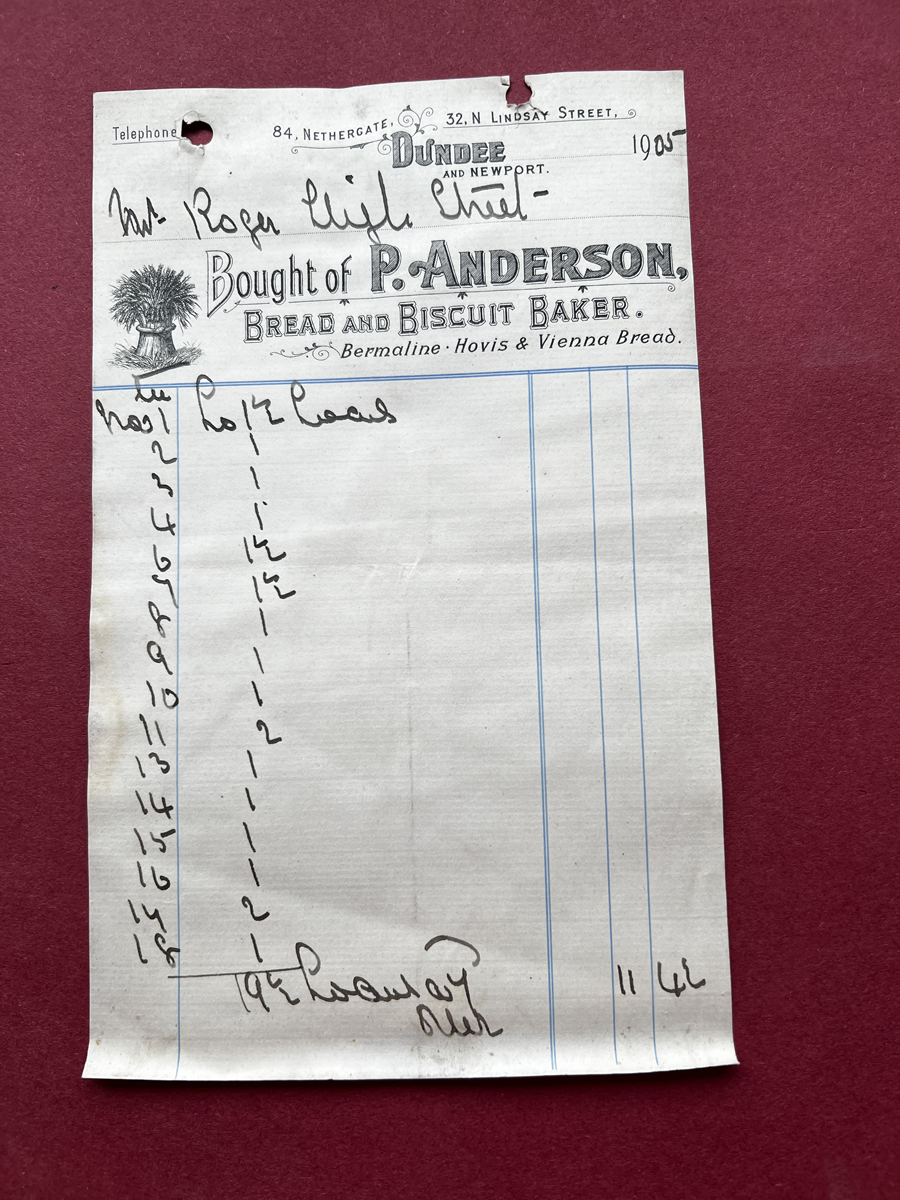 Telephone
84, NETHERGATE, 32, N LINDSAY STREET,
DUNDEE 1905
AND NEWPORT.
Roger High Street
Bought of P. ANDERSON,
BREAD AND BISCUIT BAKER.
Bermaline · Hovis & Vienna Bread.
1 To 1½ Loaves
2 1
3 1
4 1
6 1½
7 1½
8 1
9 1
10 1
11 2
13 1
14 1
15 1
16 1
17 2
18 1
19½ Loaves @ 7 11 4½